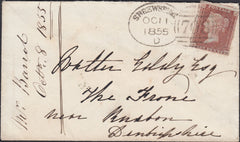 Mr Barrot
Octr. 8 1855
SHREWSBURY
OC 11
1855
D
Watter Eddy Esq
The Frone
near Ruabon
Denbighshire